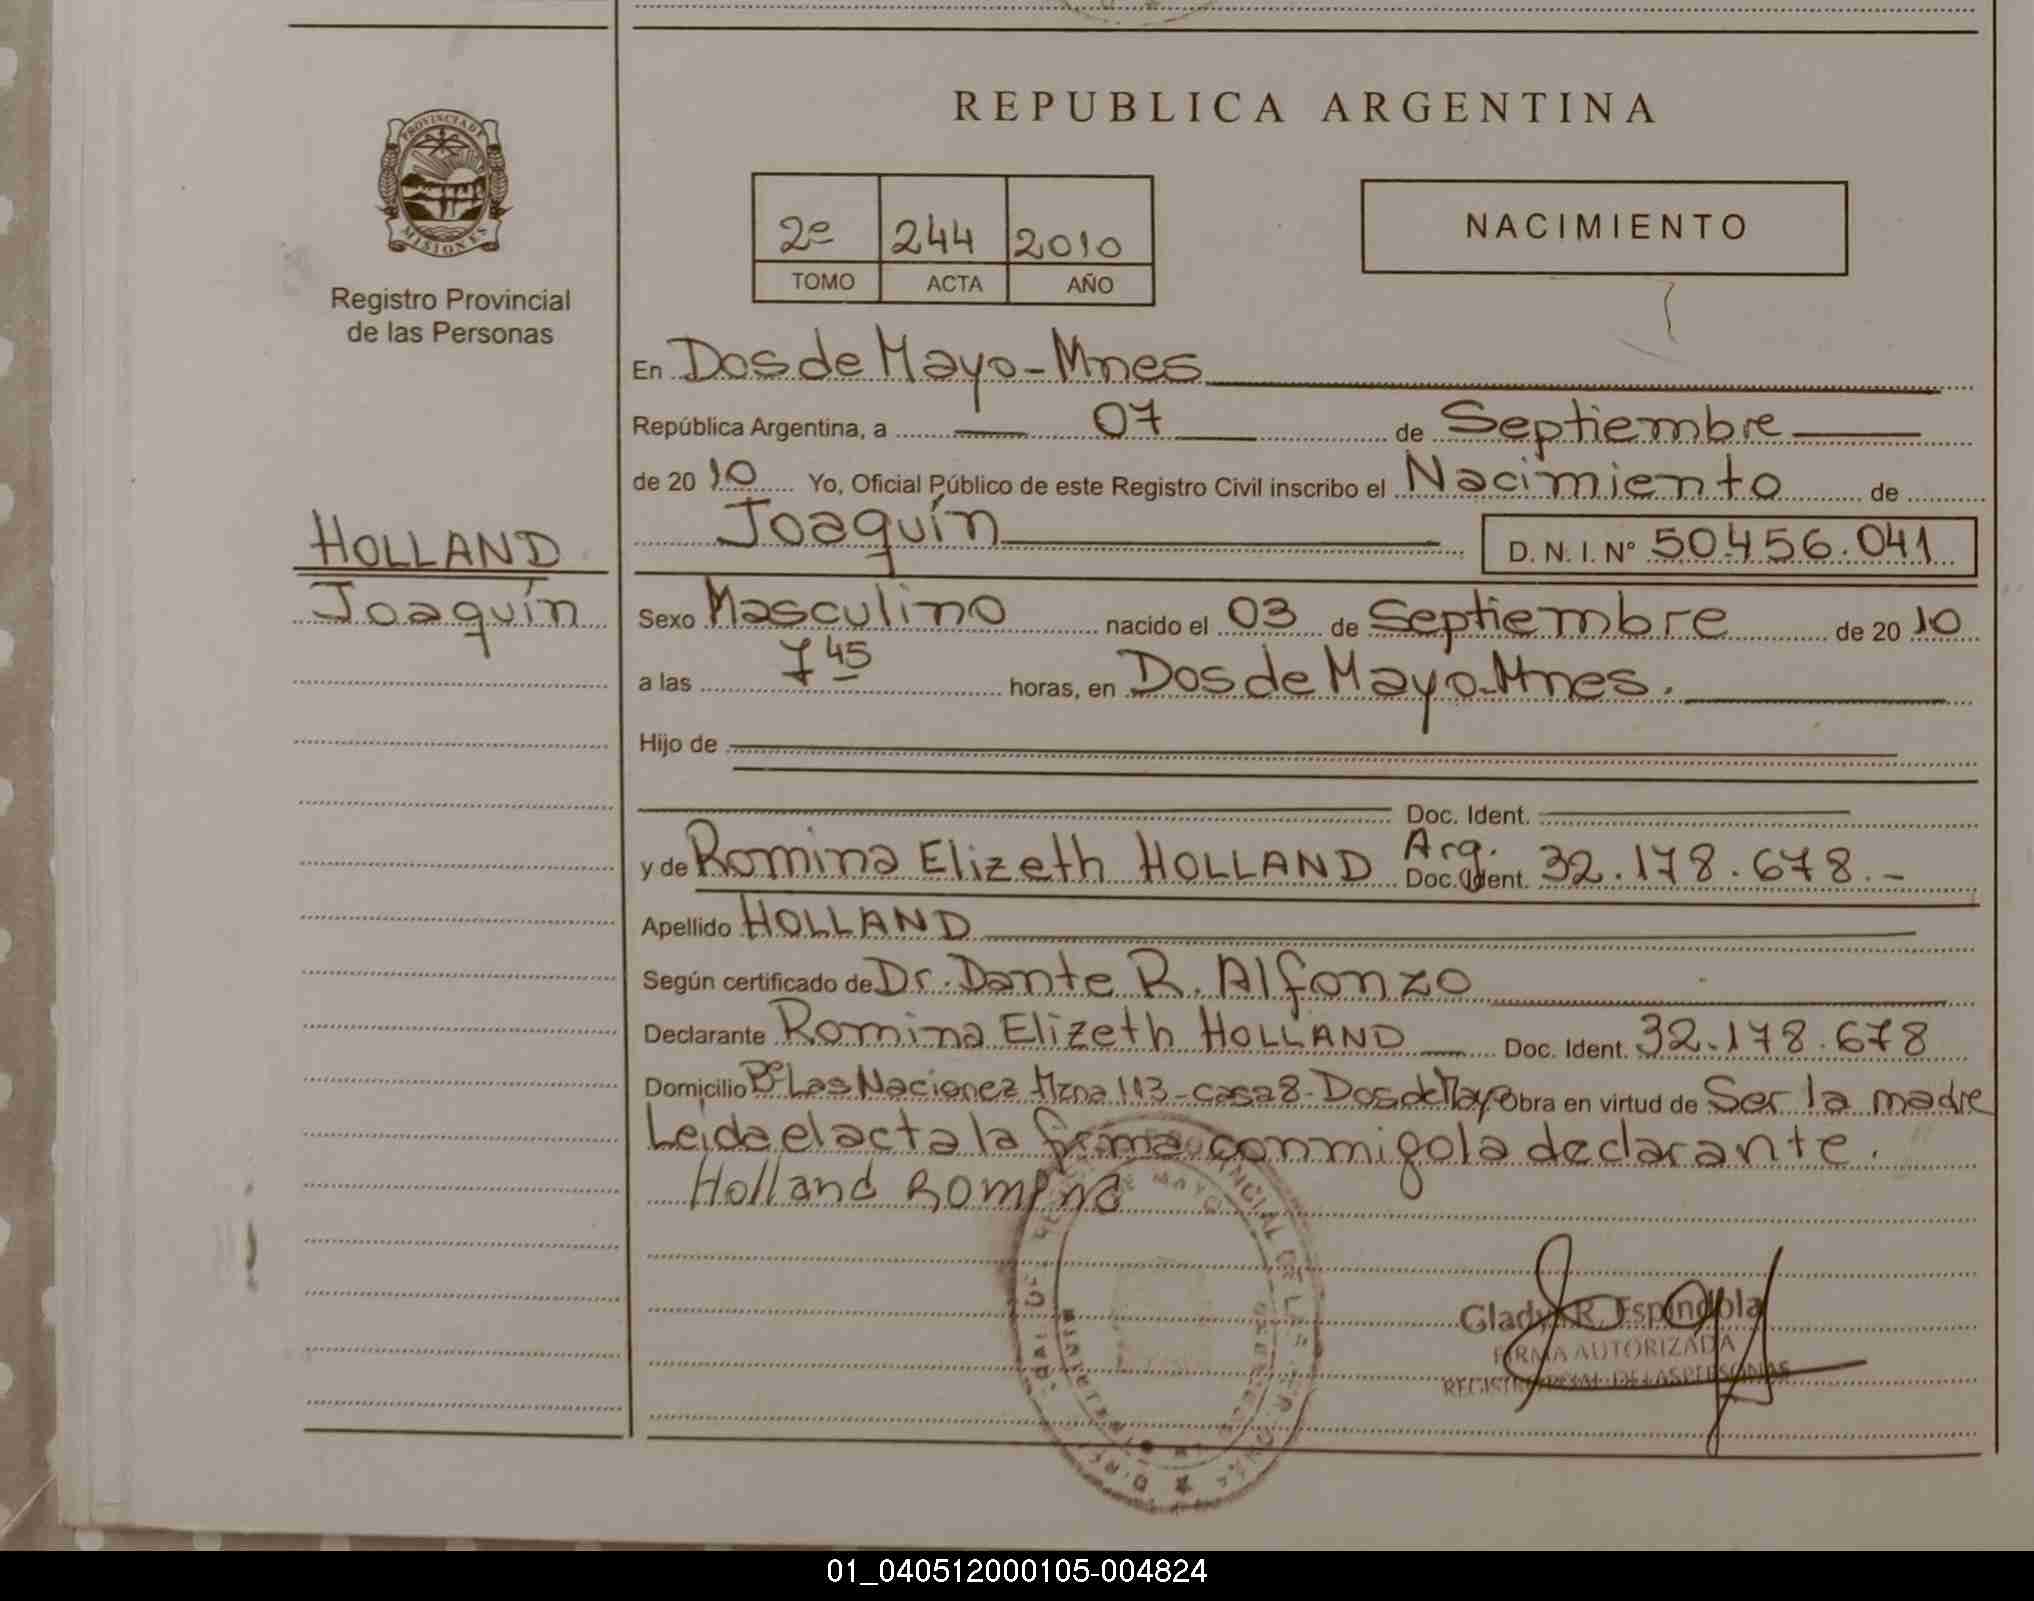 REPUBLICA ARGENTINA
PROVINCIA DE
MISIONES
Registro Provincial
de las Personas
2º 244 2010
TOMO ACTA AÑO
NACIMIENTO
En Dos de Mayo - Mnes
República Argentina, a 07 de Septiembre
de 2010 Yo, Oficial Público de este Registro Civil inscribo el Nacimiento de
Joaquín D. N. I. Nº 50.456.041
HOLLAND
Joaquín
Sexo Masculino nacido el 03 de Septiembre de 2010
a las 7 45 horas, en Dos de Mayo - Mnes.
Hijo de
Doc. Ident.
y de Romina Elizeth HOLLAND Arg. Doc. Ident. 32.178.678.-
Apellido HOLLAND
Según certificado de Dr. Dante R. Alfonzo
Declarante Romina Elizeth HOLLAND Doc. Ident. 32.178.678
Domicilio Bº Las Naciones Mzna 113 - casa 8 - Dos de Mayo Obra en virtud de Ser la madre
Leida el acta la firma conmigo la declarante.
Holland Romina
Gladys R. Espindola
FIRMA AUTORIZADA
REGISTRO PCIAL. DE LAS PERSONAS
01_040512000105-004824